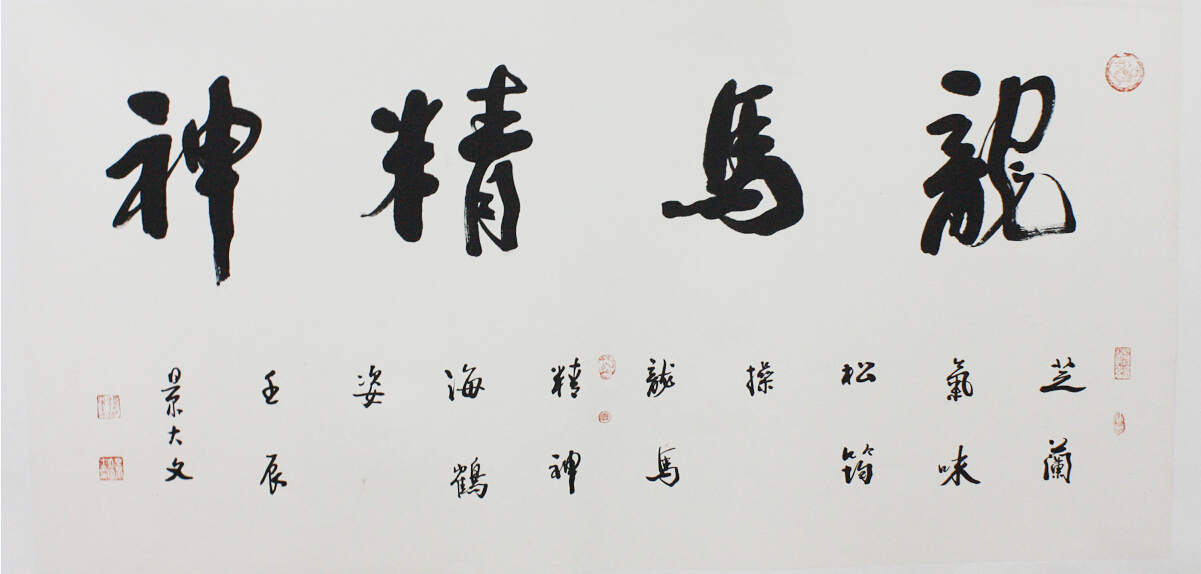 龍馬精神
芝蘭
氣味
松筠
操
龍馬
精神
海鶴
姿
壬辰
景大文